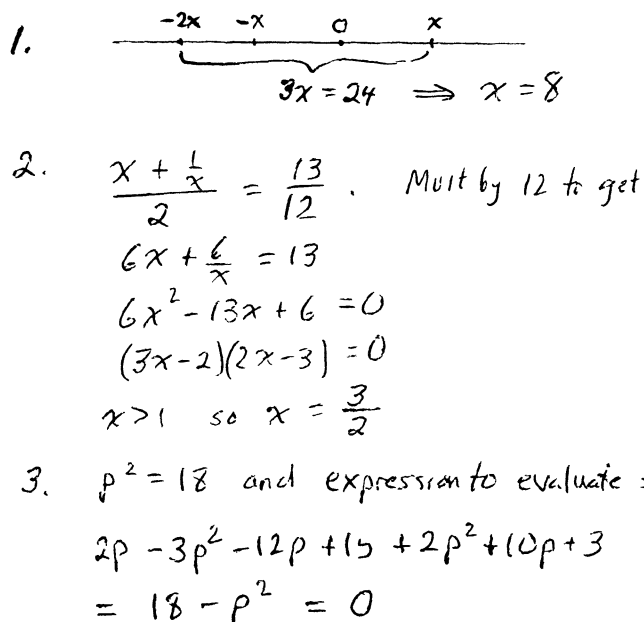 1. -2x -x 0 x
3x = 24 ⟹ x = 8
2. (x + 1/x)/2 = 13/12 . Mult by 12 to get
6x + 6/x = 13
6x² - 13x + 6 = 0
(3x-2)(2x-3) = 0
x>1 so x = 3/2
3. p² = 18 and expression to evaluate =
2p - 3p² - 12p + 15 + 2p² + 10p + 3
= 18 - p² = 0